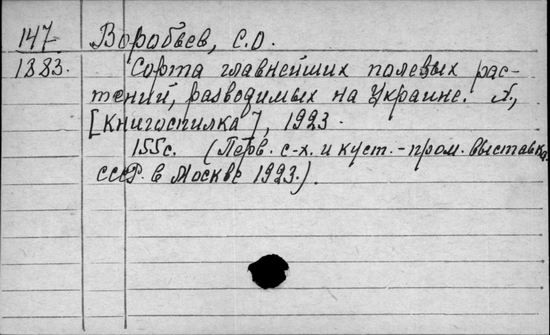 147 Воробьев, С.О.
1883. Сорта главнейших полевых рас-
тений, разводимых на Украине. Х.,
[Книгоспилка], 1923.
155с. (Перв. с-х. и куст.-пром. выставка
СССР. в Москве 1923.).